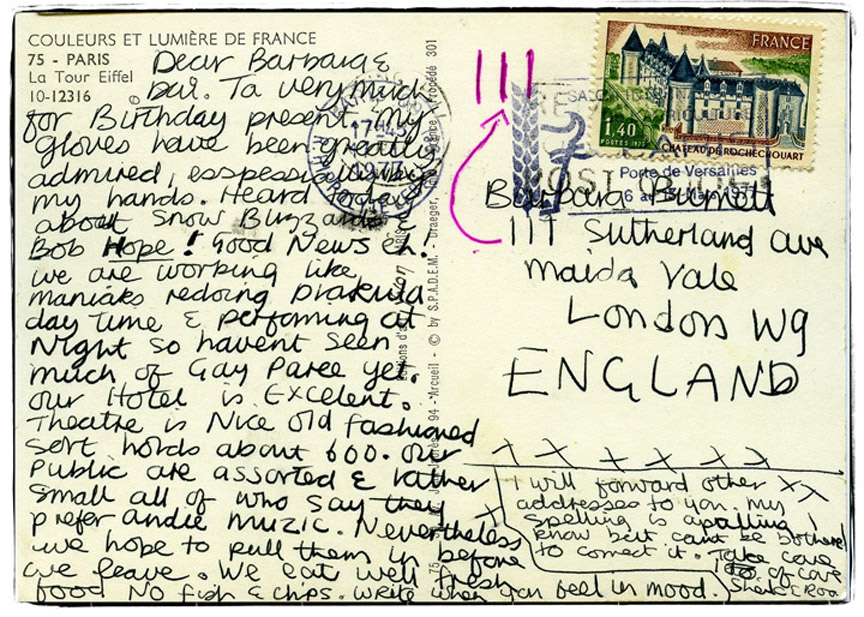 COULEURS ET LUMIÈRE DE FRANCE
75 - PARIS
La Tour Eiffel
10-12316
Dear Barbara &
. Ta very much
for Birthday present. My
gloves have been greatly
admired, esspessially
my hands. Heard today
about Snow Buzzard &
Bob Hope! Good News Eh.
we are working like
maniaks redoing Drakula
day time & performing at
Night so havent seen
much of Gay Paree yet.
our Hotel is Excelent.
Theatre is Nice old fashioned
sort holds about 600. our
Public are assorted & rather
small all of who say they
prefer andie muzic. Nevertheless
we hope to pull them in before
we leave. We eat well fresh
food No fish & chips. Write when you feel in mood.
I will forward other xx
addresses to you. My
spelling is apalling I
know but cant be bothered
to correct it. Take care
of care
111
FRANCE
1,40
POSTES 1975
CHATEAU DE ROCHECHOUART
Porte de Versailles
6 au 13 Mars 1977
17H45
1977
Barbara Burnett
111 Sutherland ave
Maida Vale
London W9
ENGLAND
x x x x x x
© by S.P.A.D.E.M.